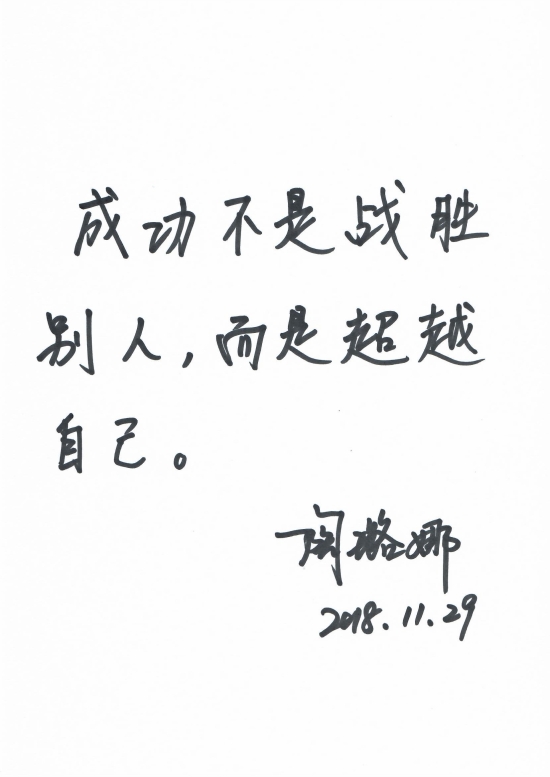 成功不是战胜
别人,而是超越
自己。
陶璐娜
2018.11.29